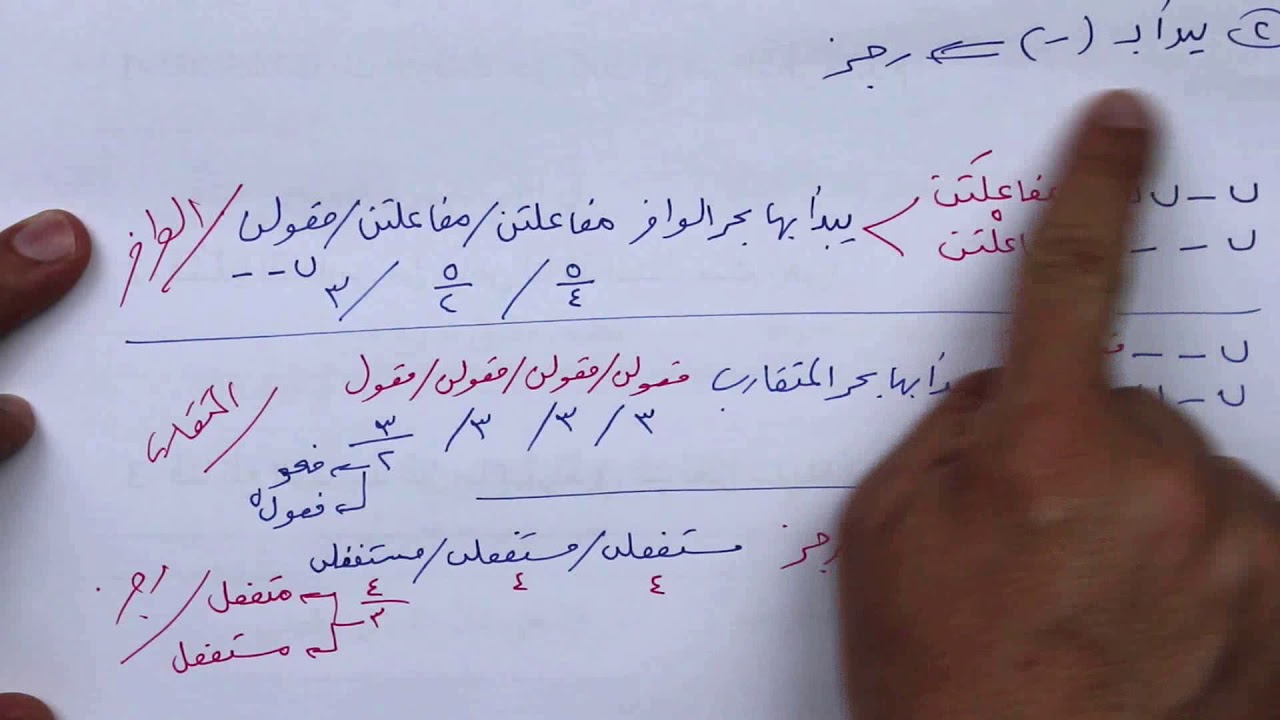 ② يبدأ بـ (-) ⇐ رجز
ب - ب ب مفاعلَتن
ب - - - مفاعلْتن
يبدأ بها بحر الوافر مفاعلتن/مفاعلتن/فعولن / الوافر
٥/٤ / ٥/٢ / ٣ ب - -
ب - -
ب -
بها بحر المتقارب فعولن/فعولن/فعولن/فعول / المتقارب
٣ / ٣ / ٣ / ٣/٢
فعو
فعولْ
رجز مستفعلن/مستفعلن/مستفعلن / رجز
٤ ٤ ٤/٣
متفعل
مستفعل